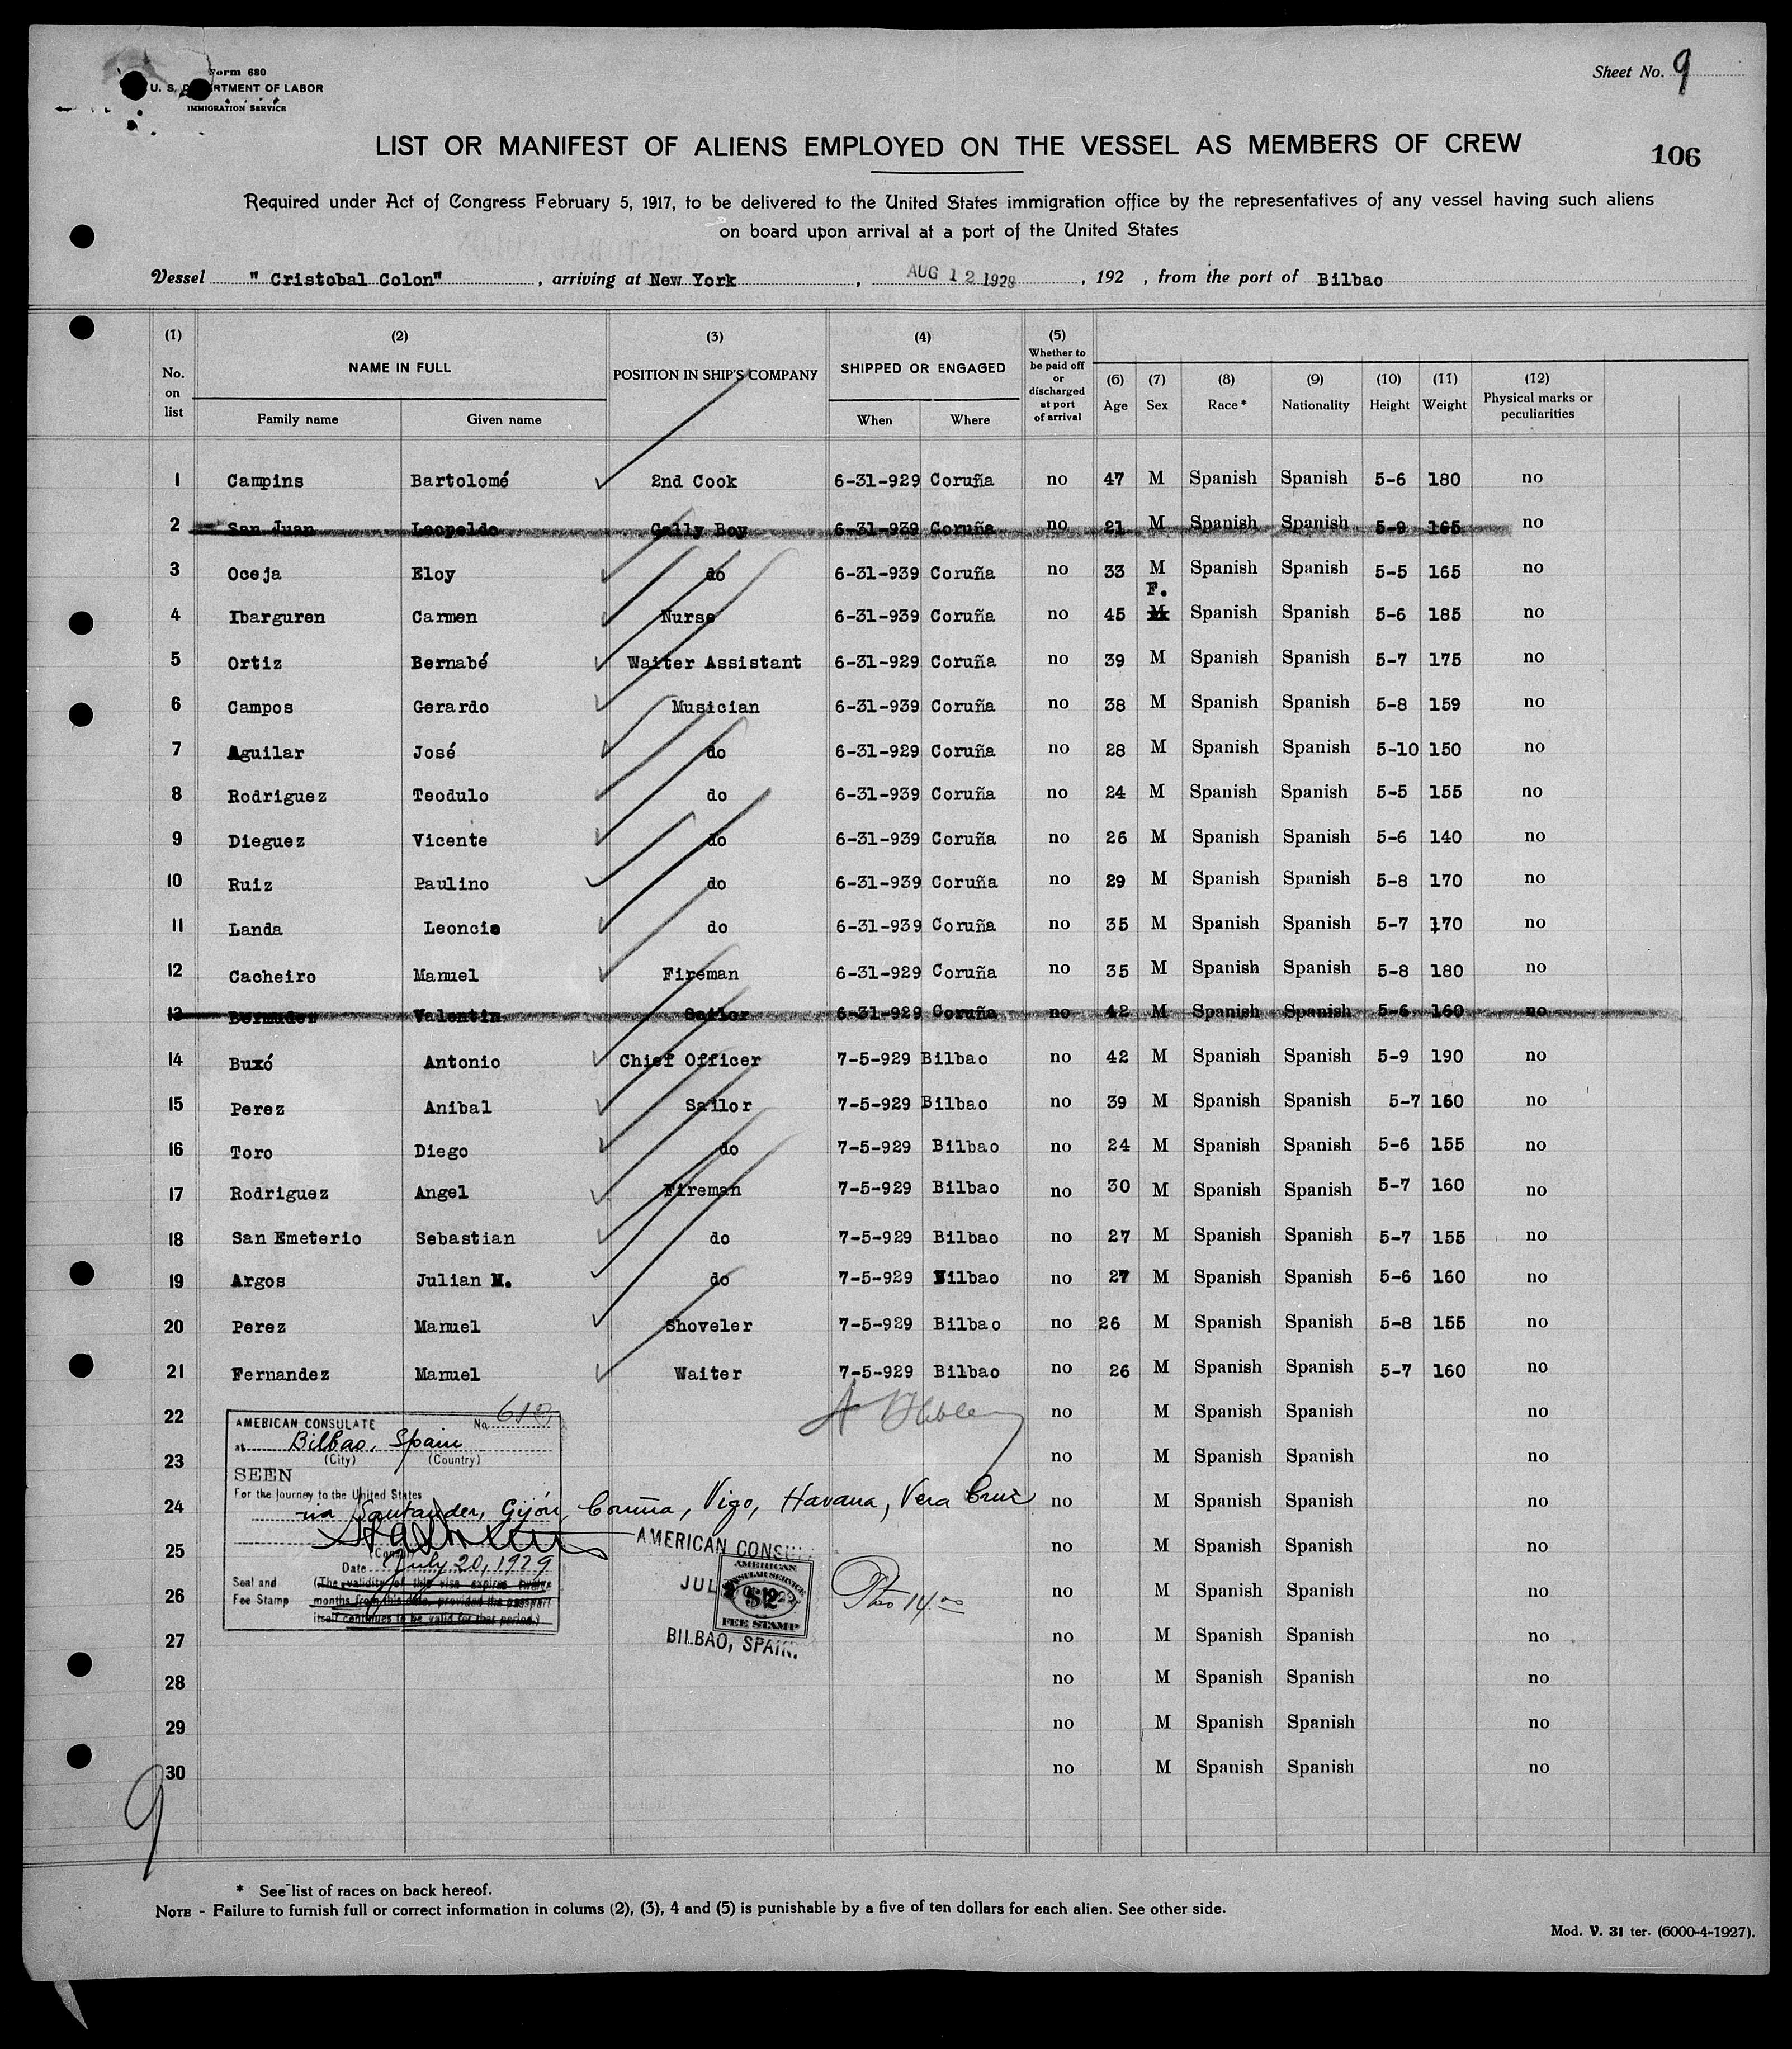 Form 680
U. S. DEPARTMENT OF LABOR
IMMIGRATION SERVICE
Sheet No. 9
LIST OR MANIFEST OF ALIENS EMPLOYED ON THE VESSEL AS MEMBERS OF CREW
106
Required under Act of Congress February 5, 1917, to be delivered to the United States immigration office by the representatives of any vessel having such aliens
on board upon arrival at a port of the United States
Vessel " Cristobal Colon" , arriving at New York , AUG 12 1929 , 192 , from the port of Bilbao
(1) No. on list (2) NAME IN FULL Family name Given name (3) POSITION IN SHIP'S COMPANY (4) SHIPPED OR ENGAGED When Where (5) Whether to be paid off or discharged at port of arrival (6) Age (7) Sex (8) Race * (9) Nationality (10) Height (11) Weight (12) Physical marks or peculiarities
1 Campins Bartolomé 2nd Cook 6-31-929 Coruña no 47 M Spanish Spanish 5-6 180 no
2 San Juan Leopoldo Gally Boy 6-31-939 Coruña no 21 M Spanish Spanish 5-9 165 no
3 Oceja Eloy do 6-31-939 Coruña no 33 M Spanish Spanish 5-5 165 no
F.
4 Ibarguren Carmen Nurse 6-31-939 Coruña no 45 M Spanish Spanish 5-6 185 no
5 Ortiz Bernabé Waiter Assistant 6-31-929 Coruña no 39 M Spanish Spanish 5-7 175 no
6 Campos Gerardo Musician 6-31-939 Coruña no 38 M Spanish Spanish 5-8 159 no
7 Aguilar José do 6-31-929 Coruña no 28 M Spanish Spanish 5-10 150 no
8 Rodriguez Teodulo do 6-31-939 Coruña no 24 M Spanish Spanish 5-5 155 no
9 Dieguez Vicente do 6-31-939 Coruña no 26 M Spanish Spanish 5-6 140 no
10 Ruiz Paulino do 6-31-939 Coruña no 29 M Spanish Spanish 5-8 170 no
11 Landa Leoncio do 6-31-939 Coruña no 35 M Spanish Spanish 5-7 170 no
12 Cacheiro Manuel Fireman 6-31-929 Coruña no 35 M Spanish Spanish 5-8 180 no
13 Bermudez Valentin Sailor 6-31-929 Coruña no 42 M Spanish Spanish 5-6 160 no
14 Buxó Antonio Chief Officer 7-5-929 Bilbao no 42 M Spanish Spanish 5-9 190 no
15 Perez Anibal Sailor 7-5-929 Bilbao no 39 M Spanish Spanish 5-7 160 no
16 Toro Diego do 7-5-929 Bilbao no 24 M Spanish Spanish 5-6 155 no
17 Rodriguez Angel Fireman 7-5-929 Bilbao no 30 M Spanish Spanish 5-7 160 no
18 San Emeterio Sebastian do 7-5-929 Bilbao no 27 M Spanish Spanish 5-7 155 no
19 Argos Julian M. do 7-5-929 Bilbao no 27 M Spanish Spanish 5-6 160 no
20 Perez Manuel Shoveler 7-5-929 Bilbao no 26 M Spanish Spanish 5-8 155 no
21 Fernandez Manuel Waiter 7-5-929 Bilbao no 26 M Spanish Spanish 5-7 160 no
22 no M Spanish Spanish no
23 no M Spanish Spanish no
24 no M Spanish Spanish no
25 no M Spanish Spanish no
26 no M Spanish Spanish no
27 no M Spanish Spanish no
28 no M Spanish Spanish no
29 no M Spanish Spanish no
30 no M Spanish Spanish no
AMERICAN CONSULATE No.
at Bilbao, Spain
(City) (Country)
SEEN
For the Journey to the United States
via Santander, Gijón, Coruña, Vigo, Havana, Vera Cruz
(Consul)
Date July 20, 1929
Seal and Fee Stamp
(The validity of this visa expires twelve
months from this date, provided the passport
itself continues to be valid for that period.)
AMERICAN CONSUL
JUL
AMERICAN
CONSULAR SERVICE
$2
FEE STAMP
BILBAO, SPAIN.
9
* See list of races on back hereof.
NOTE - Failure to furnish full or correct information in colums (2), (3), 4 and (5) is punishable by a five of ten dollars for each alien. See other side.
Mod. V. 31 ter. (6000-4-1927).